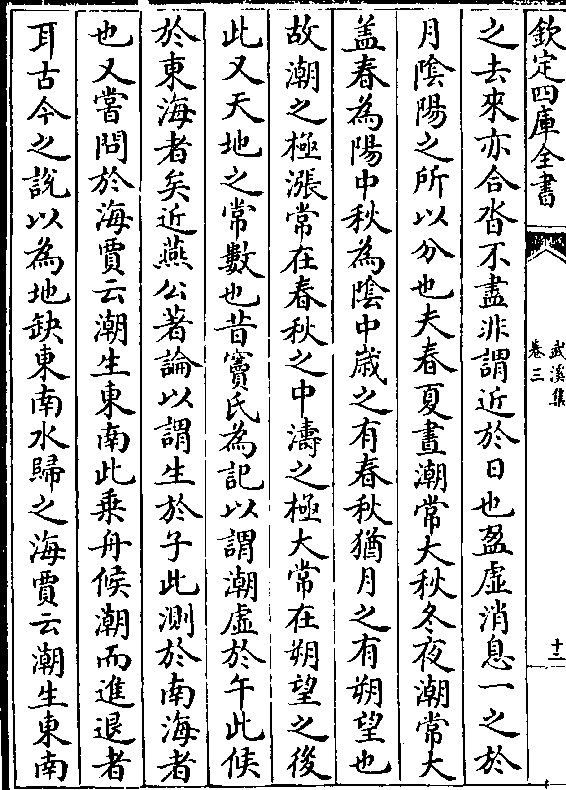 欽定四庫全書
武溪集
卷三
十一
之去來亦合沓不盡非謂近於日也盈虛消息一之於
月陰陽之所以分也夫春夏晝潮常大秋冬夜潮常大
盖春為陽中秋為陰中歳之有春秋猶月之有朔望也
故潮之極漲常在春秋之中濤之極大常在朔望之後
此又天地之常數也昔竇氏為記以謂潮虛於午此候
於東海者矣近燕公著論以謂生於子此測於南海者
也又嘗問於海賈云潮生東南此乗舟候潮而進退者
耳古今之説以為地缺東南水歸之海賈云潮生東南